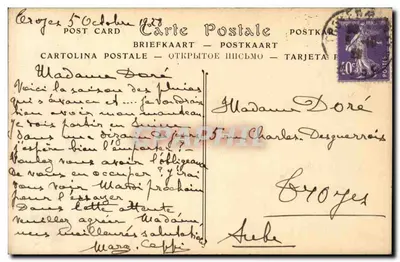 Troyes 5 Octobre 1928
POST CARD Carte Postale POSTKA
BRIEFKAART - POSTKAART
CARTOLINA POSTALE - ОТКРЫТОЕ ПИСЬМО - TARJETA P
Madame Doré
Voici la saison des pluies
qui s'avance et .... je voudrais
bien avoir mon manteau
je vais partir en
dans une dizaine
j'espère bien l'emporter ! -
Voulez vous avoir l'obligeance
de vous en occuper ? J'irai
vous voir Mardi prochain
pour l'essayer
Dans cette attente
veuillez agréer Madame
mes meilleures salutations
Marg. Cappi
Madame Doré
5 rue Charles Desguerrois
Troyes
Aube
40c